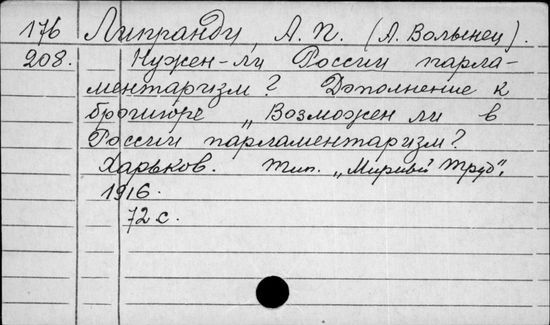 176 Липранди, А. П. (А. Волынец).
208. Нужен-ли России парла-
ментаризм? Дополнение к
брошюре „Возможен ли в
России парламентаризм?
Харьков. Тип. „Мирный труд",
1916.
72 с.